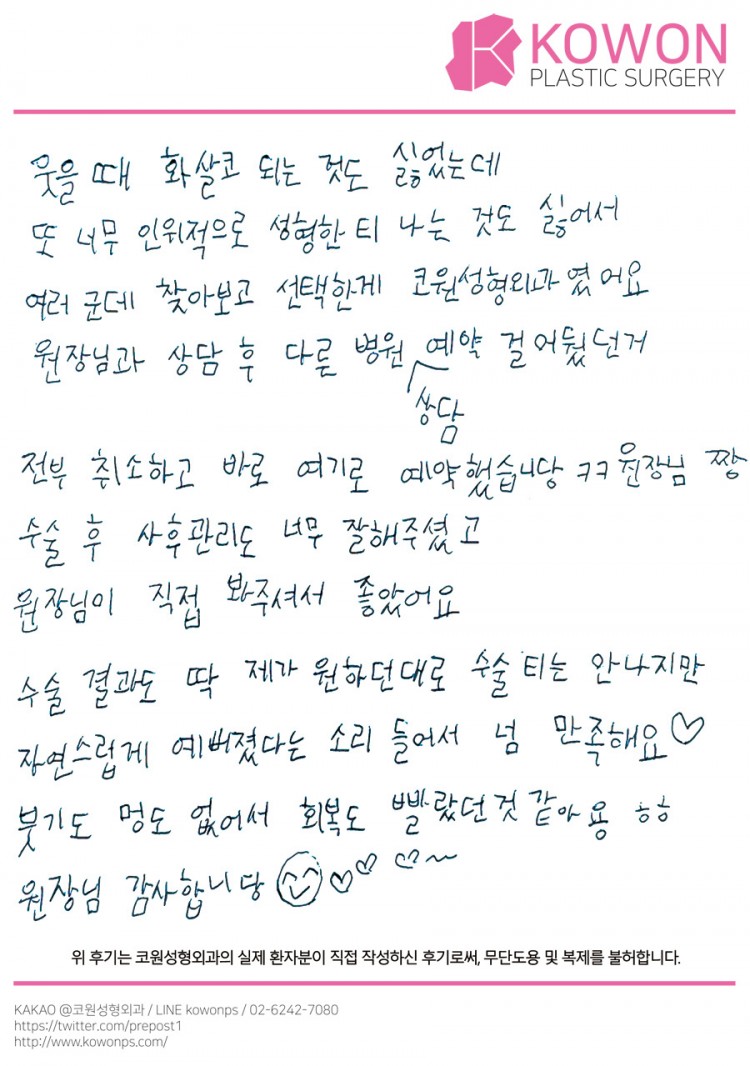 KOWON
PLASTIC SURGERY
웃을 때 화살코 되는 것도 싫었는데
또 너무 인위적으로 성형한 티 나는 것도 싫어서
여러 군데 찾아보고 선택한게 코원성형외과였어요
원장님과 상담 후 다른 병원 예약 걸어뒀던거
상담
전부 취소하고 바로 여기로 예약했습니당 ㅋㅋ 원장님 짱
수술 후 사후관리도 너무 잘해주셨고
원장님이 직접 봐주셔서 좋았어요
수술 결과도 딱 제가 원하던대로 수술 티는 안나지만
자연스럽게 예뻐졌다는 소리 들어서 넘 만족해요♡
붓기도 멍도 없어서 회복도 빨랐던것 같아용 ㅎㅎ
원장님 감사합니당 ♡♡ ♡~
위 후기는 코원성형외과의 실제 환자분이 직접 작성하신 후기로써, 무단도용 및 복제를 불허합니다.
KAKAO @코원성형외과 / LINE kowonps / 02-6242-7080
https://twitter.com/prepost1
http://www.kowonps.com/